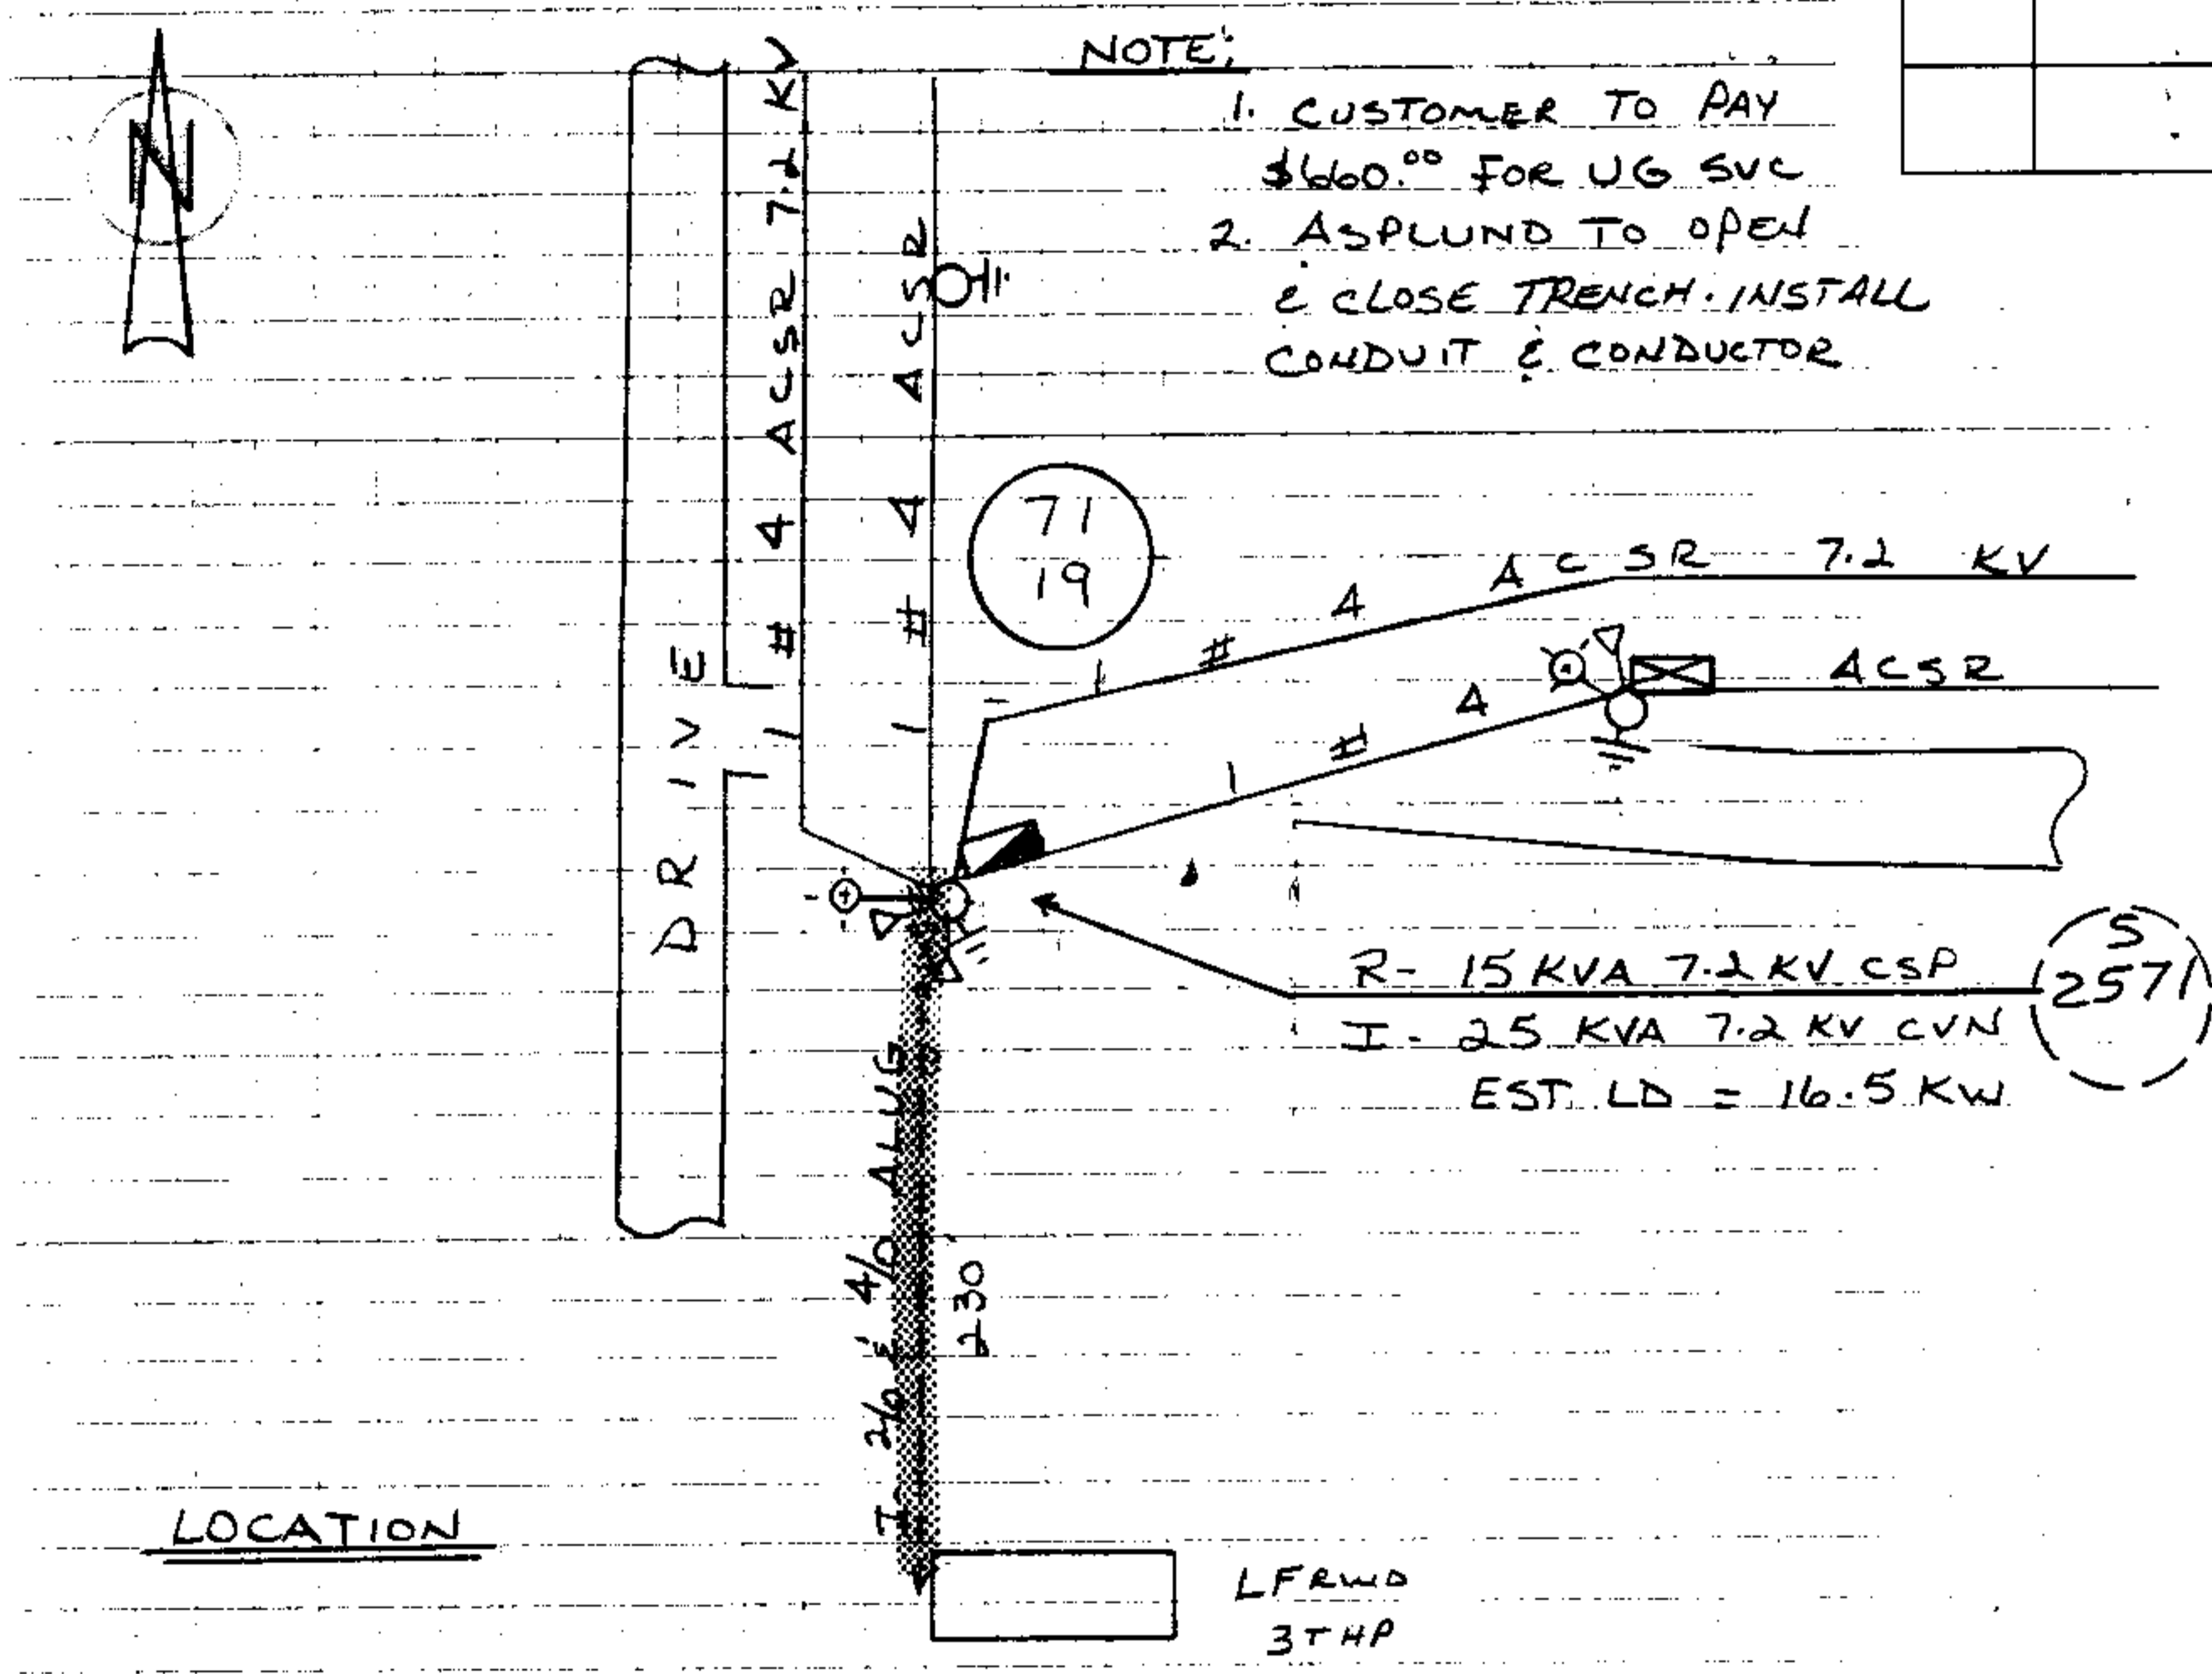 N
NOTE:
1. CUSTOMER TO PAY
$660.00 FOR UG SVC
2. ASPLUND TO OPEN
& CLOSE TRENCH. INSTALL
CONDUIT & CONDUCTOR
DRIVE
1 # 4 ACSR 7.2 KV
1 # 4 ACSR
71
19
1 # 4 ACSR 7.2 KV
1 # 4 ACSR
R- 15 KVA 7.2 KV CSP
I- 25 KVA 7.2 KV CVN
EST. LD = 16.5 KW
S
2571
I- 2/0 & 4/0 AL UG
230'
LOCATION
LFRWD
3THP